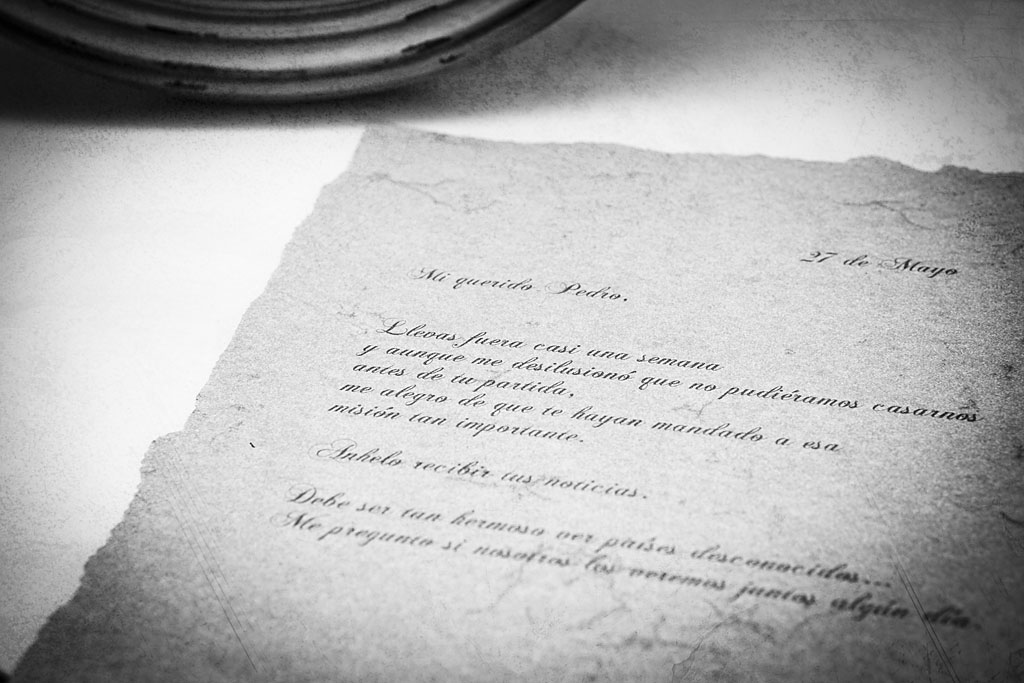 27 de Mayo
Mi querido Pedro.
Llevas fuera casi una semana
y aunque me desilusionó que no pudiéramos casarnos
antes de tu partida,
me alegro de que te hayan mandado a esa
misión tan importante.
Anhelo recibir tus noticias.
Debe ser tan hermoso ver países desconocidos...
Me pregunto si nosotros los veremos juntos algún día.